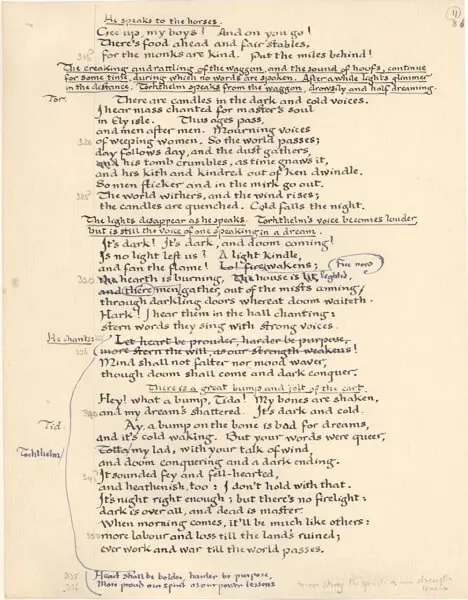 11
86
He speaks to the horses.
Gee up, my boys! And on you go!
There's food ahead and fair stables,
315 for the monks are kind. Put the miles behind!
The creaking and rattling of the waggon, and the sound of hoofs, continue
for some time, during which no words are spoken. After a while lights glimmer
in the distance. Torhthelm speaks from the waggon, drowsily and half dreaming.
Tor. There are candles in the dark and cold voices.
I hear mass chanted for master's soul
in Ely isle. Thus ages pass,
and men after men. Mourning voices
320 of weeping women. So the world passes;
day follows day, and the dust gathers,
and his tomb crumbles, as time gnaws it,
and his kith and kindred out of ken dwindle.
So men flicker and in the mirk go out.
325 The world withers, and the wind rises;
the candles are quenched. Cold falls the night.
The lights disappear as he speaks. Torhthelm's voice becomes louder,
but is still the voice of one speaking in a dream.
It's dark! It's dark, and doom coming!
Is no light left us? A light kindle,
and fan the flame! Lo! fire wakens; fire now
330 the hearth is burning, The house is lit, lighted,
and there men gather, out of the mists coming
through darkling doors whereat doom waiteth.
Hark! I hear them in the hall chanting:
stern words they sing with strong voices.
He chants: 335 Let heart be prouder, harder be purpose,
336 more stern the will, as our strength weakens!
Mind shall not falter nor mood waver,
though doom shall come and dark conquer.
There is a great bump and jolt of the cart.
Hey! what a bump, Tida! My bones are shaken,
340 and my dreams shattered. It's dark and cold.
Tid. Ay, a bump on the bone is bad for dreams,
and it's cold waking. But your words were queer,
Torhthelm Totta my lad, with your talk of wind
and doom conquering and a dark ending.
345 It sounded fey and fell-hearted,
and heathenish, too: I don't hold with that.
It's night right enough; but there's no firelight:
dark is over all, and dead is master.
When morning comes, it'll be much like others:
350 more labour and loss till the lands ruined;
ever work and war till the world passes.
335 Heart shall be bolder, harder be purpose,
336 more proud our spirit as our power lessens
more strong the spirit as our strength